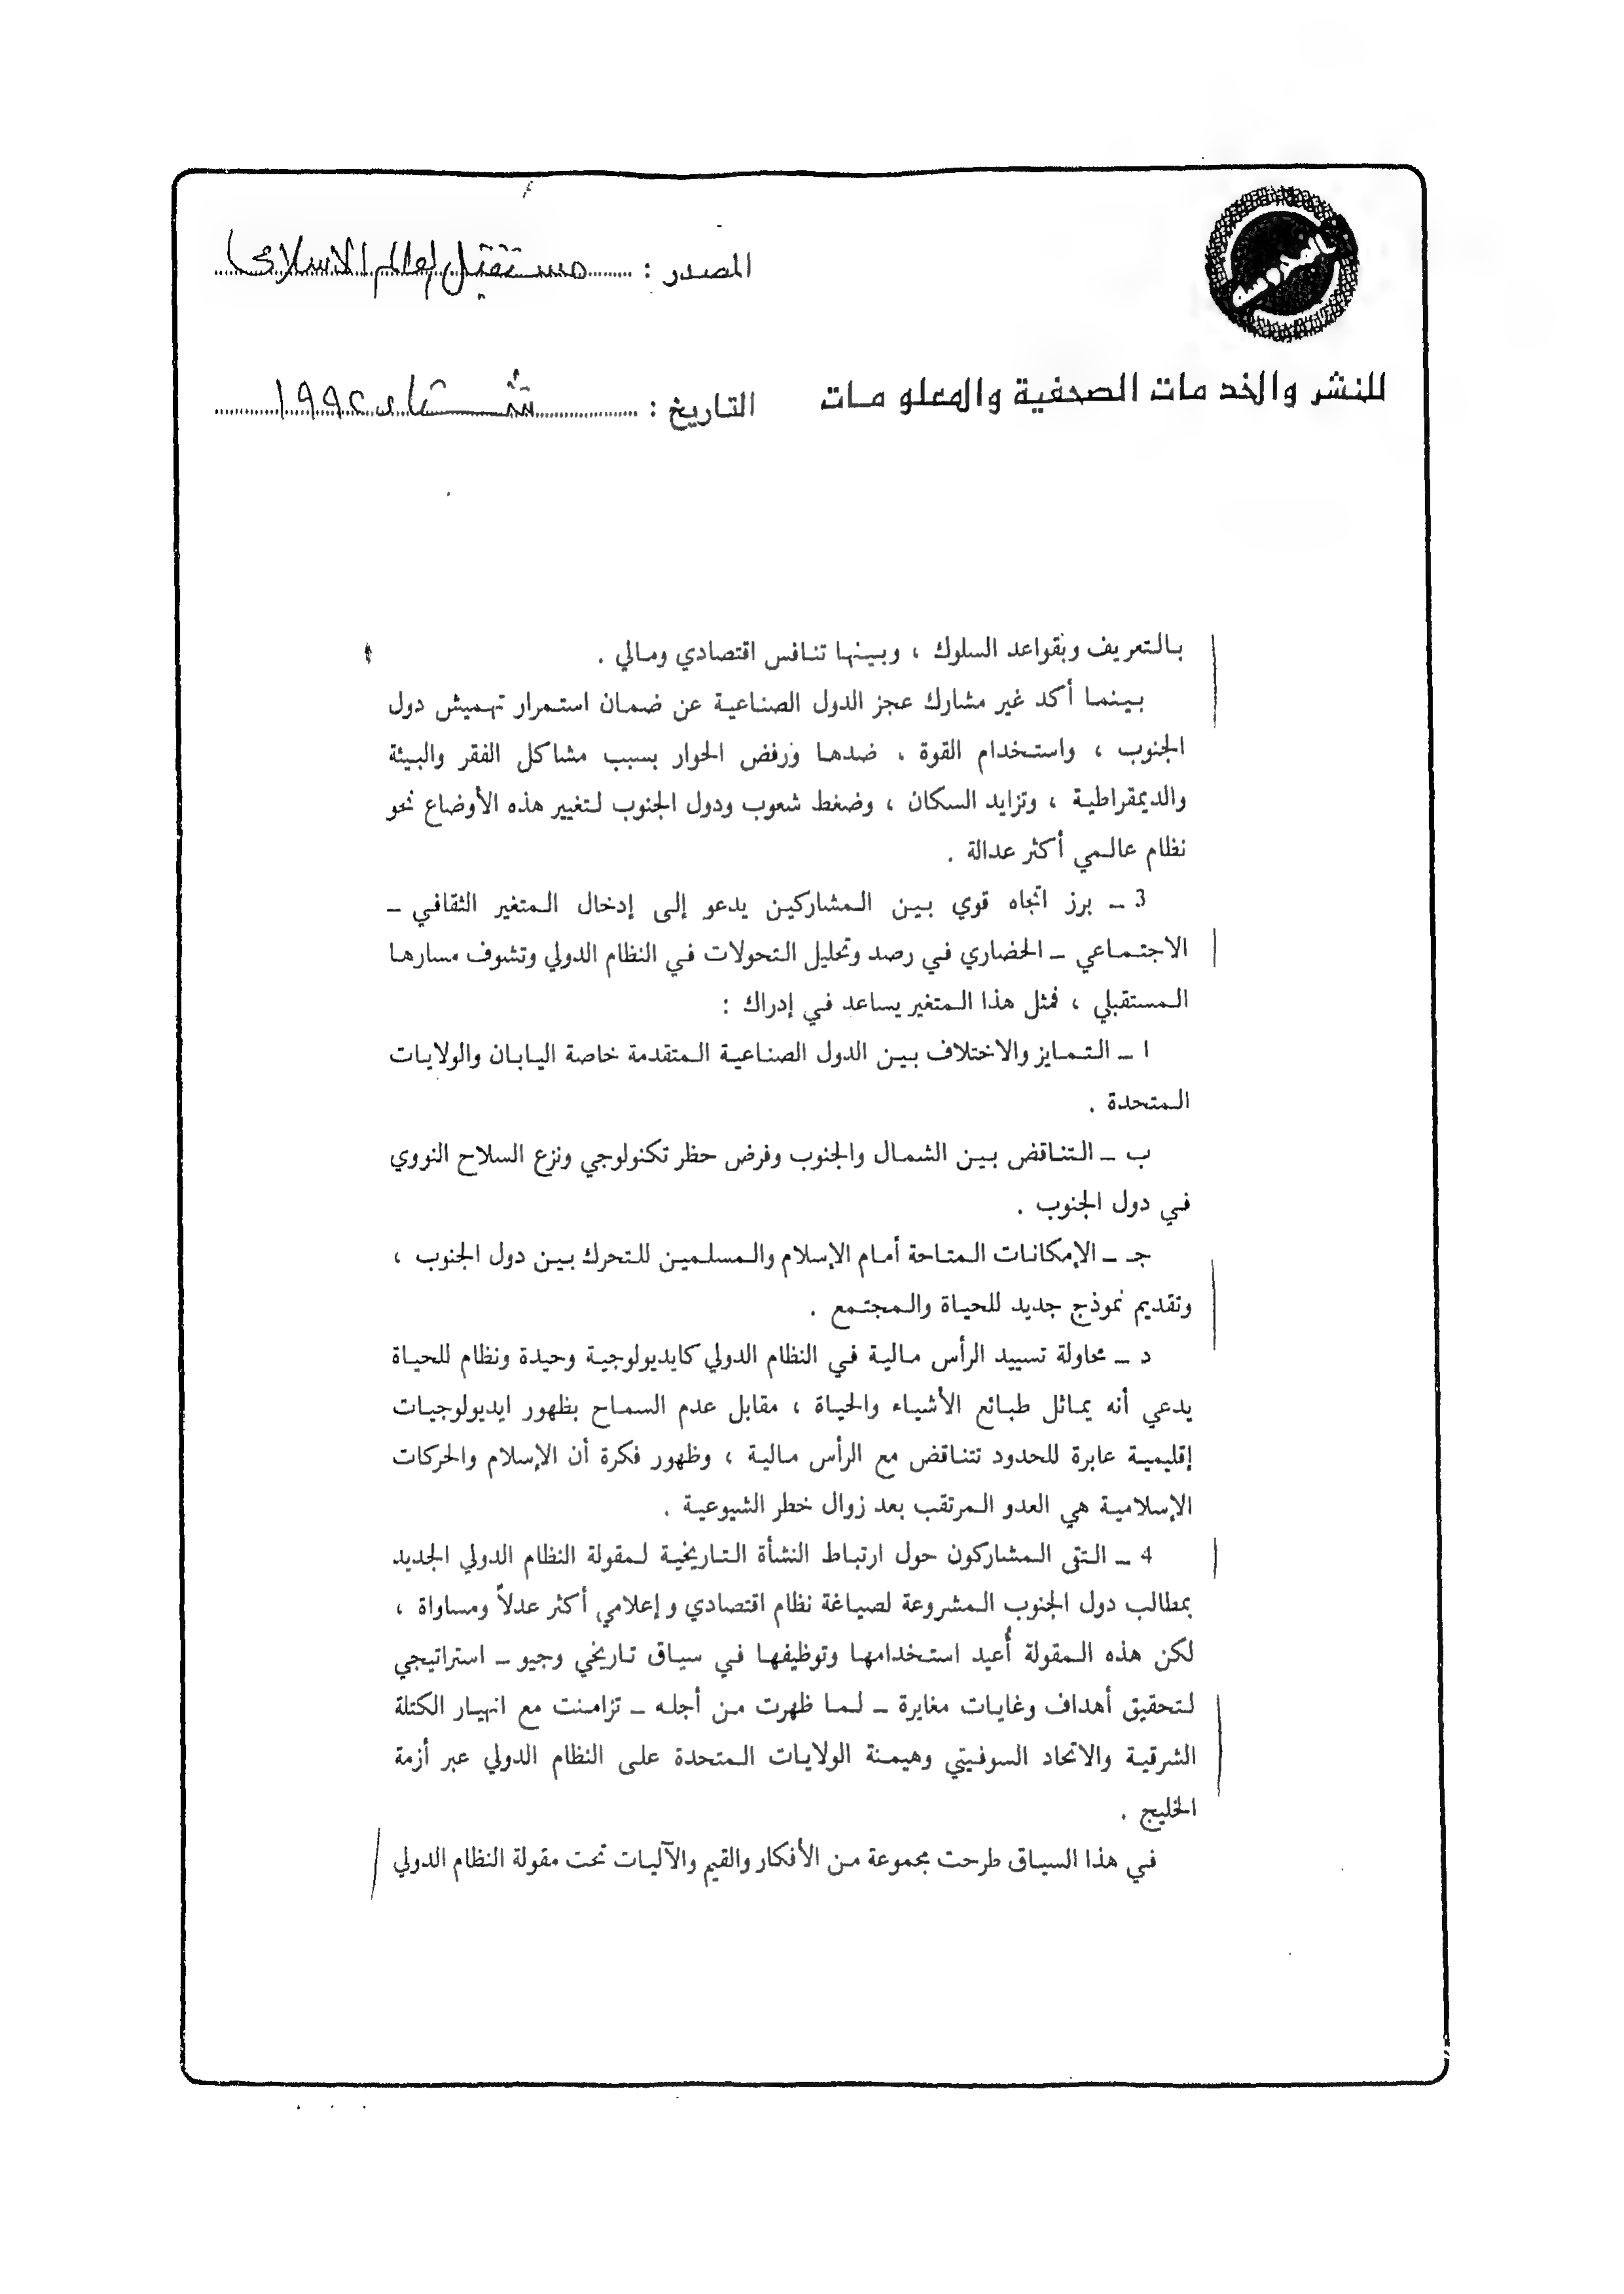 المصدر : مستقبل العالم الاسلامى
للنشر والخدمات الصحفية والمعلومات
التاريخ : شتاء ١٩٩٢
بالتعريف وبقواعد السلوك ، وبينها تنافس اقتصادي ومالي .
بينما أكد غير مشارك عجز الدول الصناعية عن ضمان استمرار تهميش دول
الجنوب ، واستخدام القوة ، ضدها ورفض الحوار بسبب مشاكل الفقر والبيئة
والديمقراطية ، وتزايد السكان ، وضغط شعوب ودول الجنوب لتغيير هذه الأوضاع نحو
نظام عالمي أكثر عدالة .
3 ــ برز اتجاه قوي بين المشاركين يدعو إلى إدخال المتغير الثقافي ــ
الاجتماعي ــ الحضاري في رصد وتحليل التحولات في النظام الدولي وتشوف مسارها
المستقبلي ، فمثل هذا المتغير يساعد في إدراك :
ا ــ التمايز والاختلاف بين الدول الصناعية المتقدمة خاصة اليابان والولايات
المتحدة .
ب ــ التناقض بين الشمال والجنوب وفرض حظر تكنولوجي ونزع السلاح النووي
في دول الجنوب .
جـ ــ الإمكانات المتاحة أمام الإسلام والمسلمين للتحرك بين دول الجنوب ،
وتقديم نموذج جديد للحياة والمجتمع .
د ــ محاولة تسييد الرأس مالية في النظام الدولي كايديولوجية وحيدة ونظام للحياة
يدعي أنه يماثل طبائع الأشياء والحياة ، مقابل عدم السماح بظهور ايديولوجيات
إقليمية عابرة للحدود تتناقض مع الرأس مالية ، وظهور فكرة أن الإسلام والحركات
الإسلامية هي العدو المرتقب بعد زوال خطر الشيوعية .
4 ــ التقى المشاركون حول ارتباط النشأة التاريخية لمقولة النظام الدولي الجديد
بمطالب دول الجنوب المشروعة لصياغة نظام اقتصادي وإعلامي أكثر عدلاً ومساواة ،
لكن هذه المقولة أُعيد استخدامها وتوظيفها في سياق تاريخي وجيو ــ استراتيجي
لتحقيق أهداف وغايات مغايرة ــ لما ظهرت من أجله ــ تزامنت مع انهيار الكتلة
الشرقية والاتحاد السوفيتي وهيمنة الولايات المتحدة على النظام الدولي عبر أزمة
الخليج .
في هذا السياق طرحت مجموعة من الأفكار والقيم والآليات تحت مقولة النظام الدولي